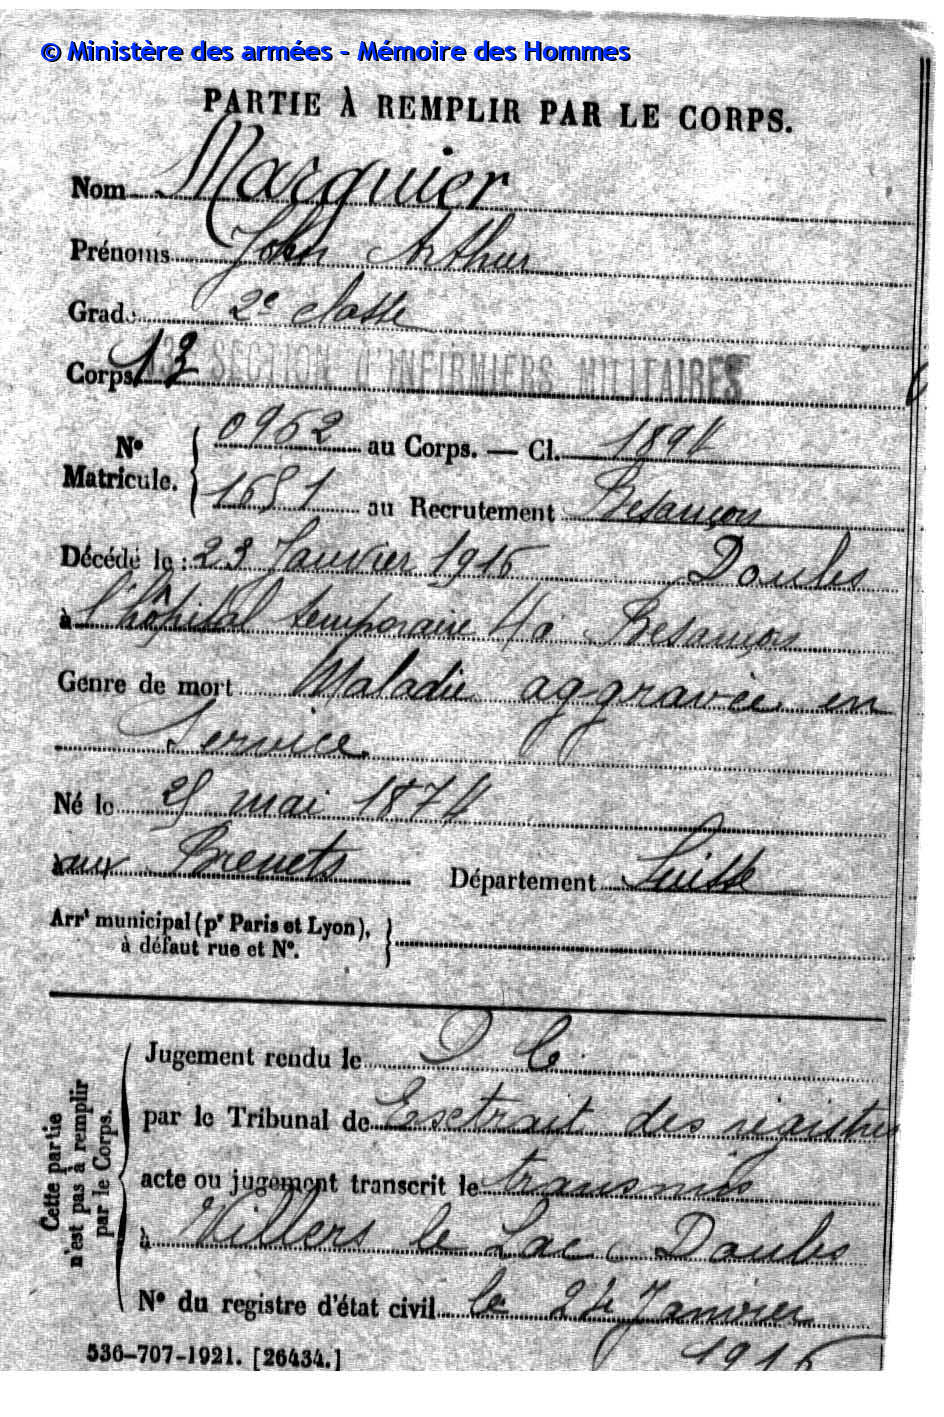 © Ministère des armées - Mémoire des Hommes
PARTIE À REMPLIR PAR LE CORPS.
Nom Marguier
Prénoms John Arthur
Grade 2e classe
Corps 13 SECTION D'INFIRMIERS MILITAIRES
N° Matricule. { 0962 au Corps. — Cl. 1894
1651 au Recrutement Besançon
Décédé le : 23 Janvier 1916 Doubs
à l'hôpital temporaire 40 Besançon
Genre de mort Maladie aggravée en
Service
Né le 25 mai 1874
aux Brenets Département Suisse
Arrt municipal (pr Paris et Lyon),
à défaut rue et N°.
Cette partie
n'est pas à remplir
par le Corps.
Jugement rendu le D C
par le Tribunal de Extrait des registres
acte ou jugement transcrit le transmis
à Villers le Lac Doubs
N° du registre d'état civil le 24 Janvier
1916
536-707-1921. [26434.]